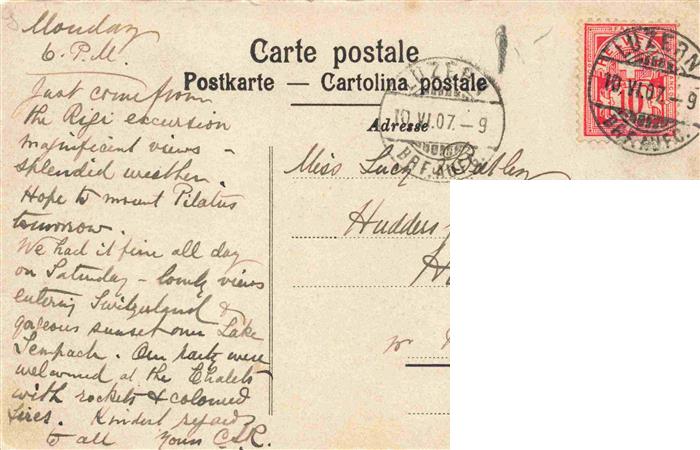 Monday
6. P.M.
Carte postale
Postkarte — Cartolina postale
Adresse
LUZERN
10.VI.07.-9
BRF.AUFG.
LUZERN
10.VI.07.-9
BRF.AUFG.
10
Just come from
the Rigi excursion
magnificent views -
splendid weather.
Hope to mount Pilatus
tomorrow.
We had it fine all day
on Saturday - lovely views
entering Switzerland &
gorgeous sunset over Lake
Sempach. Our party were
welcomed at the Chalets
with rockets & coloured
fires. Kindest regards
to all Yours C.S.R.
Miss Lucy
Hudders